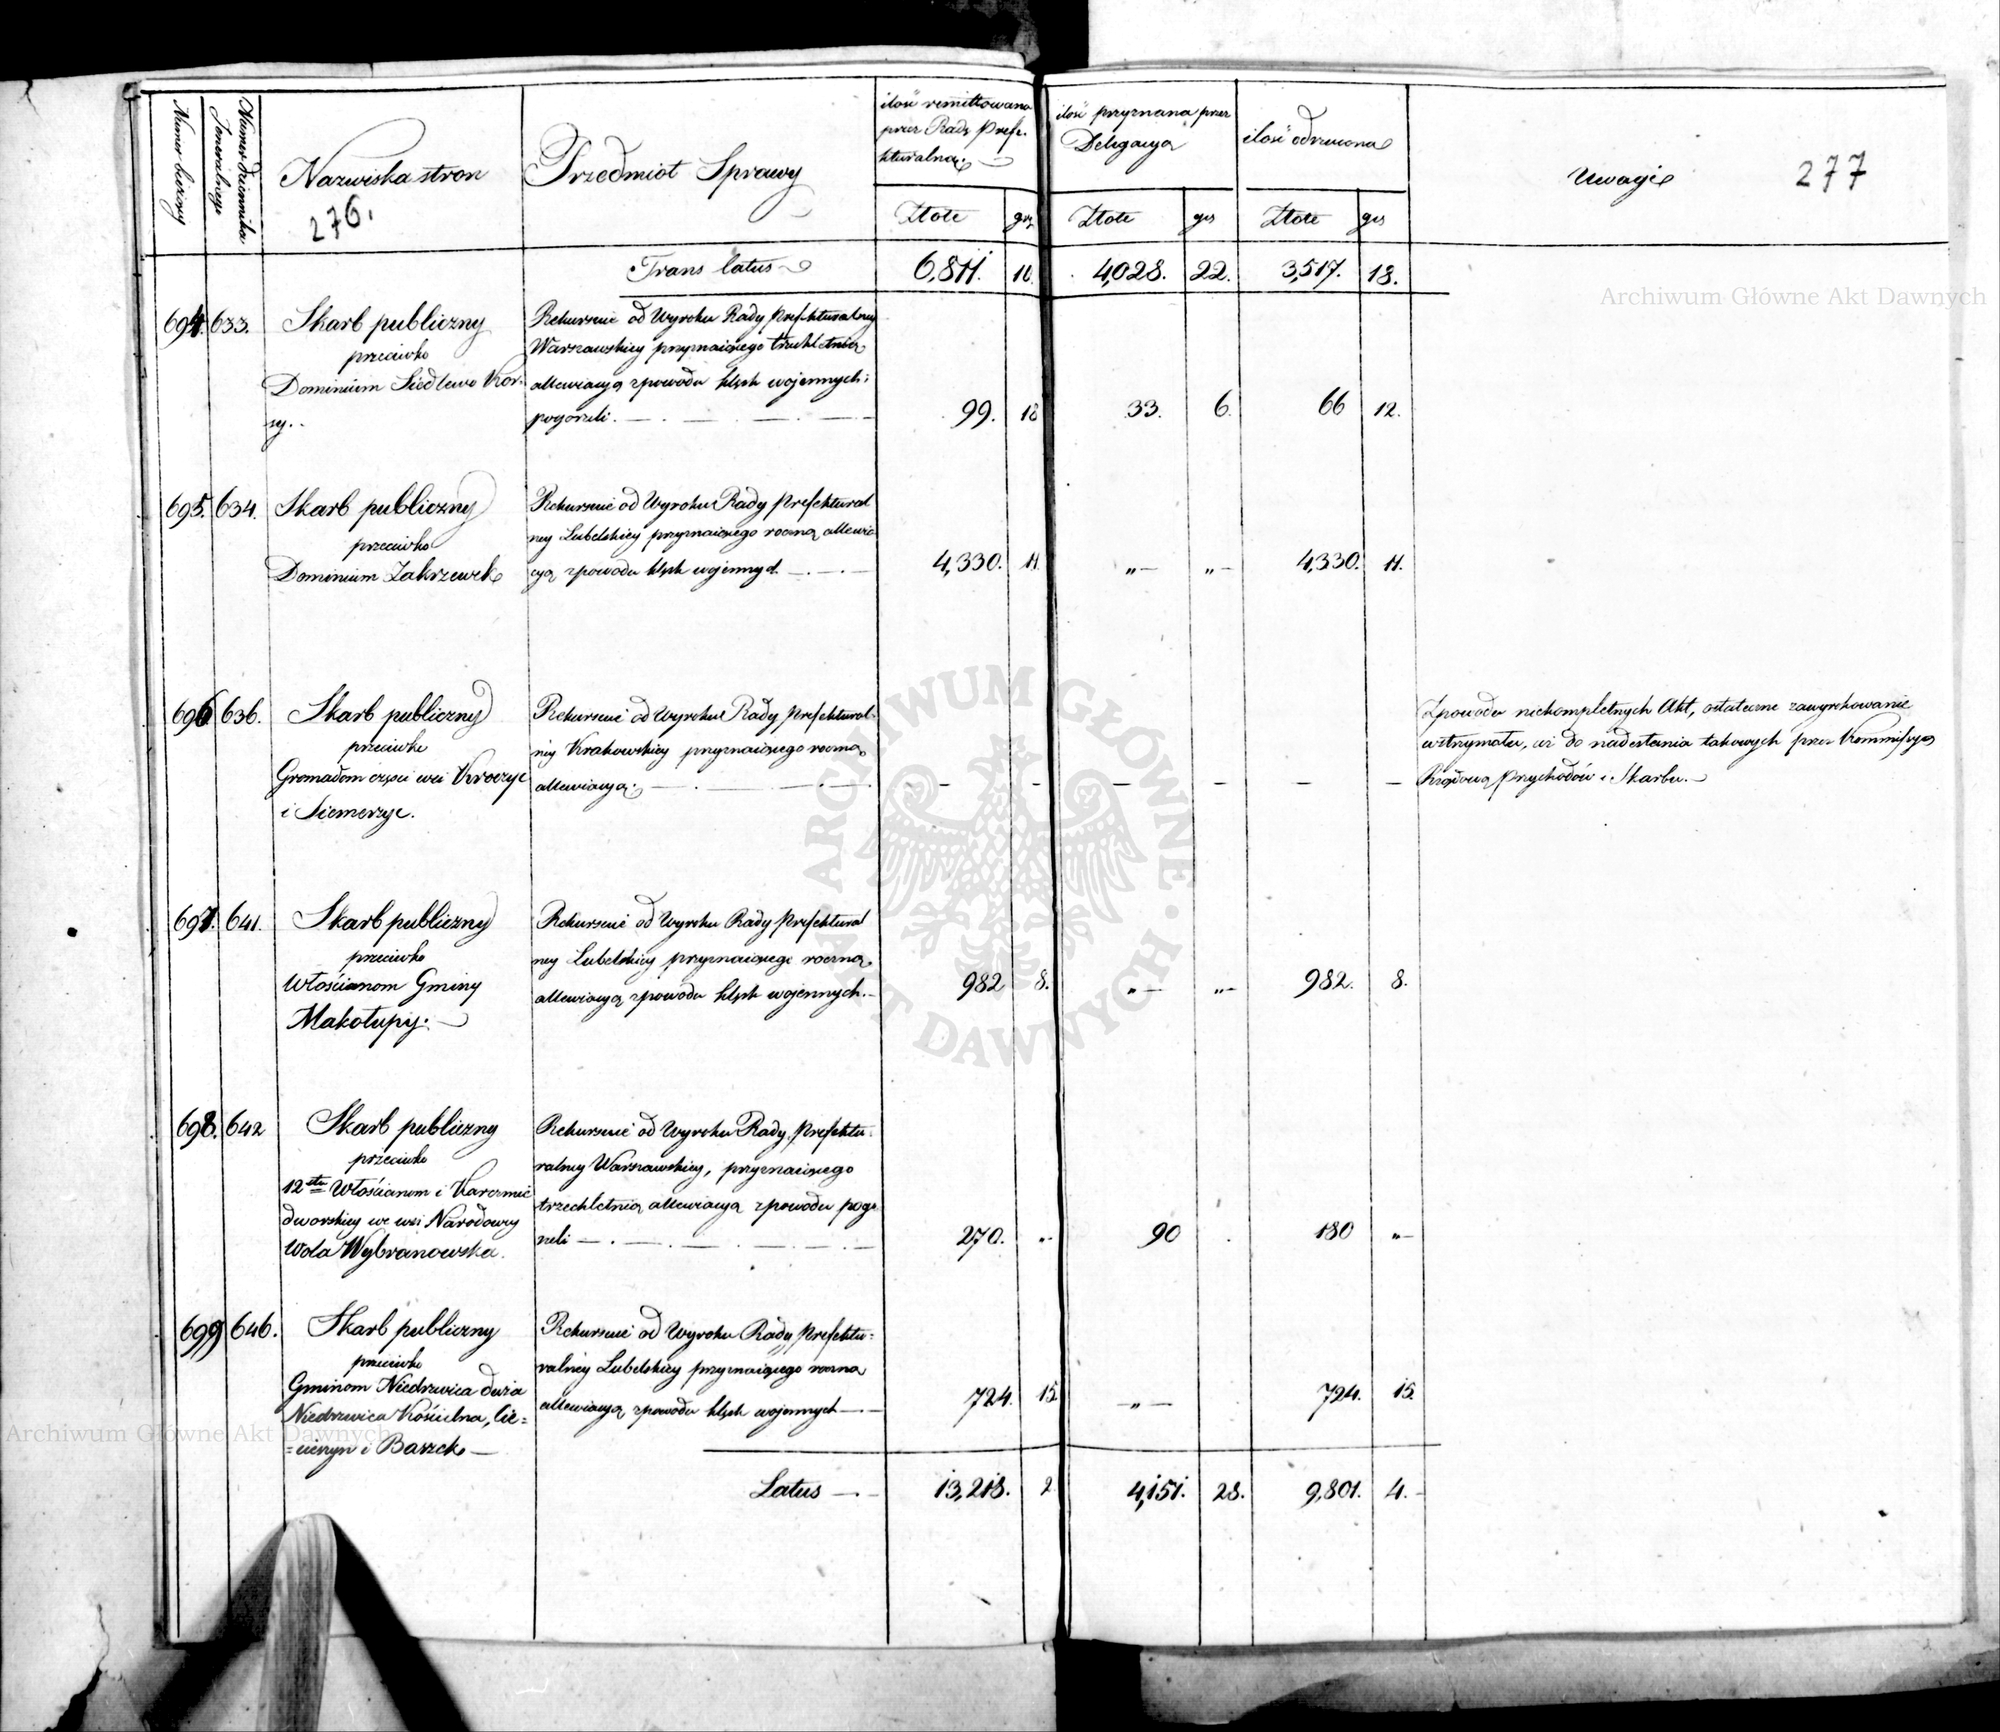 Numer bieżący
Numer Dziennika Jeneralnego
Nazwiska stron
276.
Przedmiot Sprawy
ilość remittowana przez Radę Prefe-
kturalną.
Złote
gr
ilość przyznana przez
Delegacyą
Złote
grs
ilość odrzucona
Złote
grs
Uwagi
277
Trans latus 6,811. 10. 4,028. 22. 3,517. 18.
694. 633. Skarb publiczny
przeciwko
Dominium Siedlewo Kor-
sy..
Rekursuie od Wyroku Rady Prefekturalney
Warszawskiey przyznaiącego trzechletnią
allewiacyą zpowodu klęsk wojennych i
pogorzeli. 99. 18 33. 6. 66 12.
695. 634. Skarb publiczny
przeciwko
Dominium Zakrzewek
Rekursuie od Wyroku Rady Prefektural
ney Lubelskiey przyznaiącego roczną allewia
cyą zpowodu klęsk wojennych. 4,330. 11. „ „ 4,330. 11.
696 636. Skarb publiczny
przeciwko
Gromadom części wsi Kroczyc
i Siemerzyc.
Rekursuie od Wyroku Rady Prefektural-
ney Krakowskiey przyznaiącego roczną
allewiacyą. — — — — — —
Zpowodu niekompletnych Akt, ostateczne zawyrokowanie
wstrzymała, aż do nadesłania takowych przez Kommissyą
Rządową Przychodów i Skarbu.
697. 641. Skarb publiczny
przeciwko
Włościanom Gminy
Makolupy.
Rekursuie od Wyroku Rady Prefektural
ney Lubelskiey przyznaiącego roczną
allewiacyą zpowodu klęsk wojennych. 982 8. „ „ 982. 8.
698. 642 Skarb publiczny
przeciwko
12stu Włościanom i Karczmie
dworskiey we wsi Narodowey
Wola Wybranowska.
Rekursuie od Wyroku Rady Prefektu-
ralney Warszawskiey, przyznaiącego
trzechletnią allewiacyą zpowodu pogo
rzeli 270. „ 90 . 180 „
699 646. Skarb publiczny
przeciwko
Gminom Niedrzwica duża
Niedrzwica Kościelna, Cie=
=cierzyn i Barzek
Rekursuie od Wyroku Rady Prefektu=
ralney Lubelskiey przyznaiącego roczną
allewiacyą zpowodu klęsk wojennych 724. 15 „ 724. 15
Latus 13,218. 2 4,151. 28. 9,801. 4.
Archiwum Główne Akt Dawnych
ARCHIWUM GŁÓWNE AKT DAWNYCH
Archiwum Główne Akt Dawnych